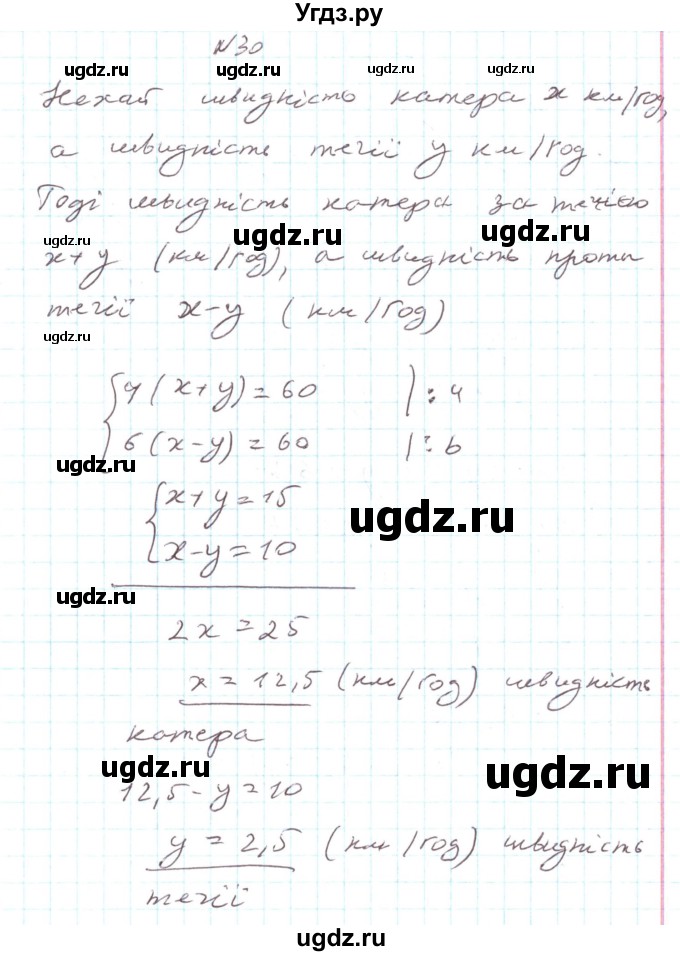 Угдз.ру
№30
ugdz.ru ugdz.ru ugdz.ru
Нехай швидність катера x км/год,
а швидність течії y км/год.
Тоді швидність катера за течією
ugdz.ru ugdz.ru
x+y (км/год), а швидність проти
течії x-y (км/год)
ugdz.ru
4(x+y)=60 |:4
6(x-y)=60 |:6
ugdz.ru
x+y=15
ugdz.ru
x-y=10
ugdz.ru
2x=25
x=12,5 (км/год) швидність
катера
ugdz.ru ugdz.ru
12,5-y=10
y=2,5 (км/год) швидність
течії
ugdz.ru